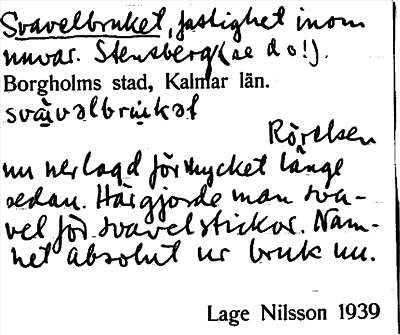 Svavelbruket, fastighet inom
nuvar. Stensberg (se d o!).
Borgholms stad, Kalmar län.
svàvəlbrùkət
Rörelsen
nu nerlagd för mycket länge
sedan. Här gjorde man sva-
vel för svavelstickor. Nam-
net absolut ur bruk nu.
Lage Nilsson 1939